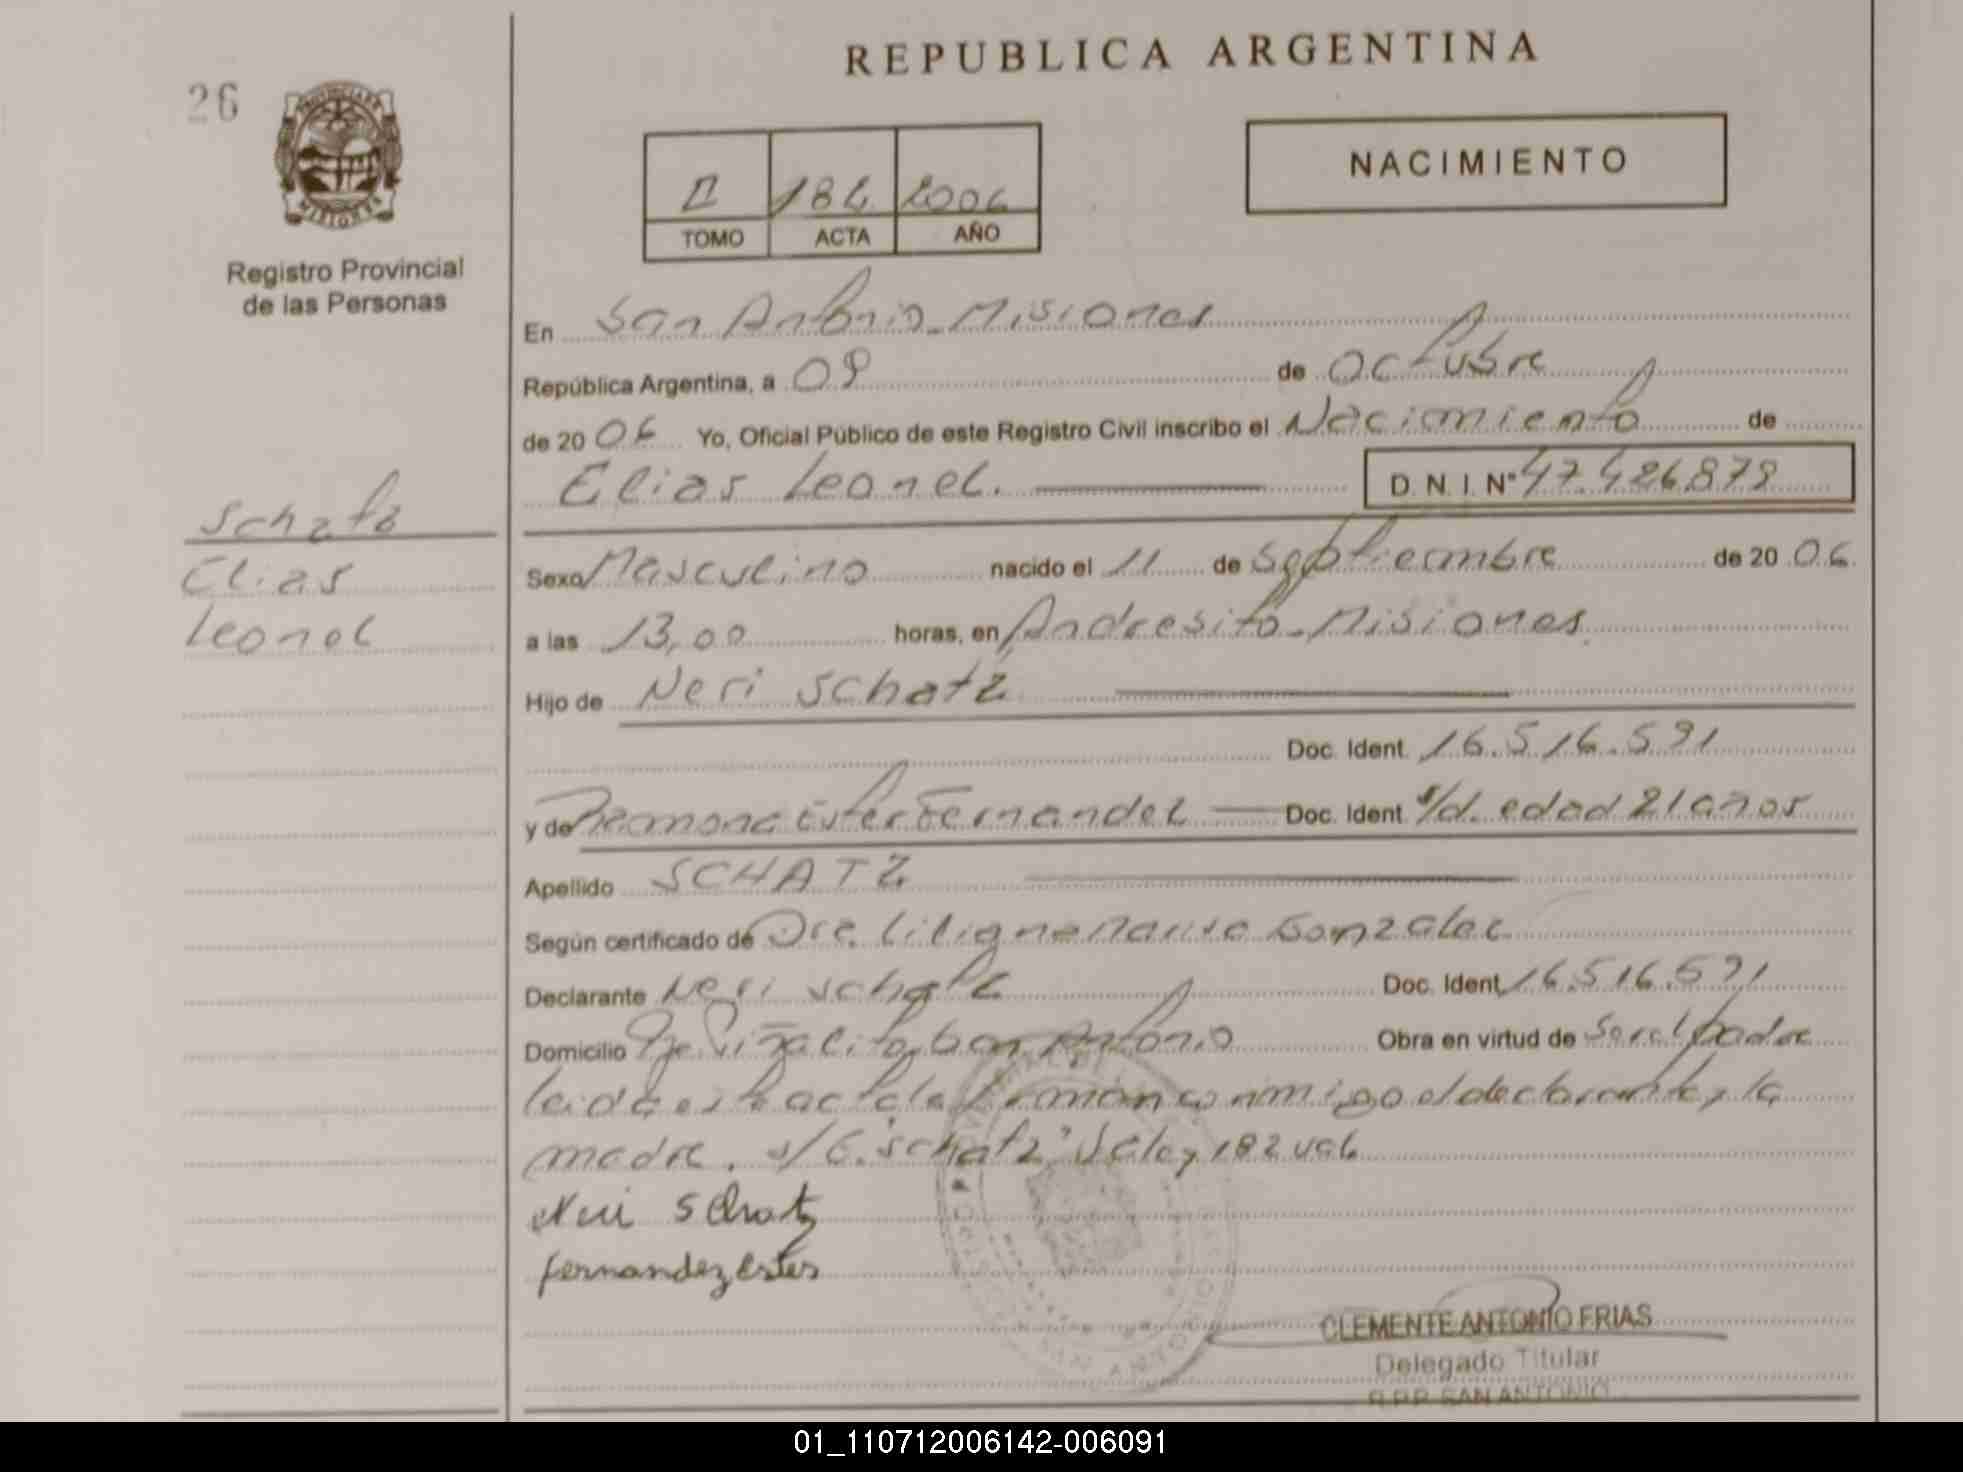 26
PROVINCIA DE
MISIONES
Registro Provincial
de las Personas
Schatz
Elias
Leonel
REPUBLICA ARGENTINA
II 184 2006
TOMO ACTA AÑO
NACIMIENTO
En San Antonio Misiones
República Argentina, a 09 de Octubre
de 2006 Yo, Oficial Público de este Registro Civil inscribo el Nacimiento de
Elias Leonel. D.N.I. Nº 47.426.878
Sexo Masculino nacido el 11 de Septiembre de 2006
a las 13,00 horas, en Andresito Misiones
Hijo de Neri Schatz
Doc. Ident. 16.516.591
y de Ramona Ester Fernandez Doc. Ident. s/d. edad 21 años
Apellido SCHATZ
Según certificado de Dra. Liliana Gonzalez
Declarante Neri Schatz Doc. Ident. 16.516.591
Domicilio Piñalito San Antonio Obra en virtud de Ser el padre
leida esta acta la firman conmigo el declarante y la
madre. s/E. "Schatz" Vale
Neri Schatz
fernandez Ester
CLEMENTE ANTONIO FRIAS
Delegado Titular
R.P.P. SAN ANTONIO
01_110712006142-006091